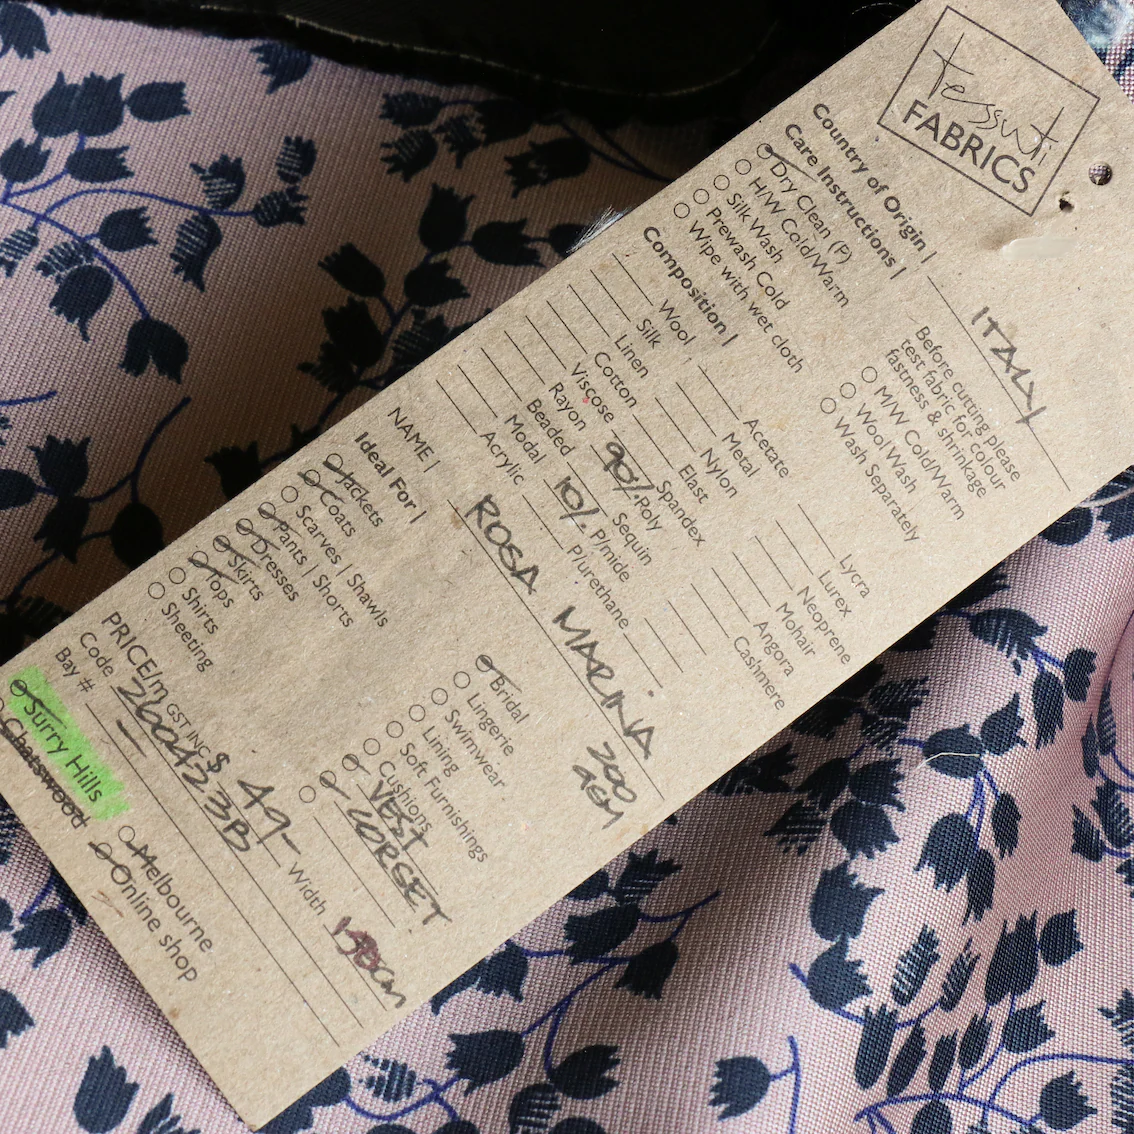 tessuti
FABRICS
Country of Origin | ITALY
Care Instructions |
Dry Clean (P)
H/W Cold/Warm
Silk Wash
Prewash Cold
Wipe with wet cloth
Before cutting please
test fabric for colour
fastness & shrinkage
M/W Cold/Warm
Wool Wash
Wash Separately
Composition |
Wool
Silk
Linen
Cotton
Viscose
Rayon
Beaded
Modal
Acrylic
Acetate
Metal
Nylon
Elast
Spandex
90% Poly
Sequin
10% P/mide
P/urethane
Lycra
Lurex
Neoprene
Mohair
Angora
Cashmere
NAME | ROSA MARINA 200
GSM
Ideal For |
Jackets
Coats
Scarves | Shawls
Pants | Shorts
Dresses
Skirts
Tops
Shirts
Sheeting
Bridal
Lingerie
Swimwear
Lining
Soft Furnishings
Cushions
VEST
CORSET
PRICE/m GST INC $ 49- Width 150cm
Code 260423B
Bay # -
Surry Hills
Chatswood
Melbourne
Online shop